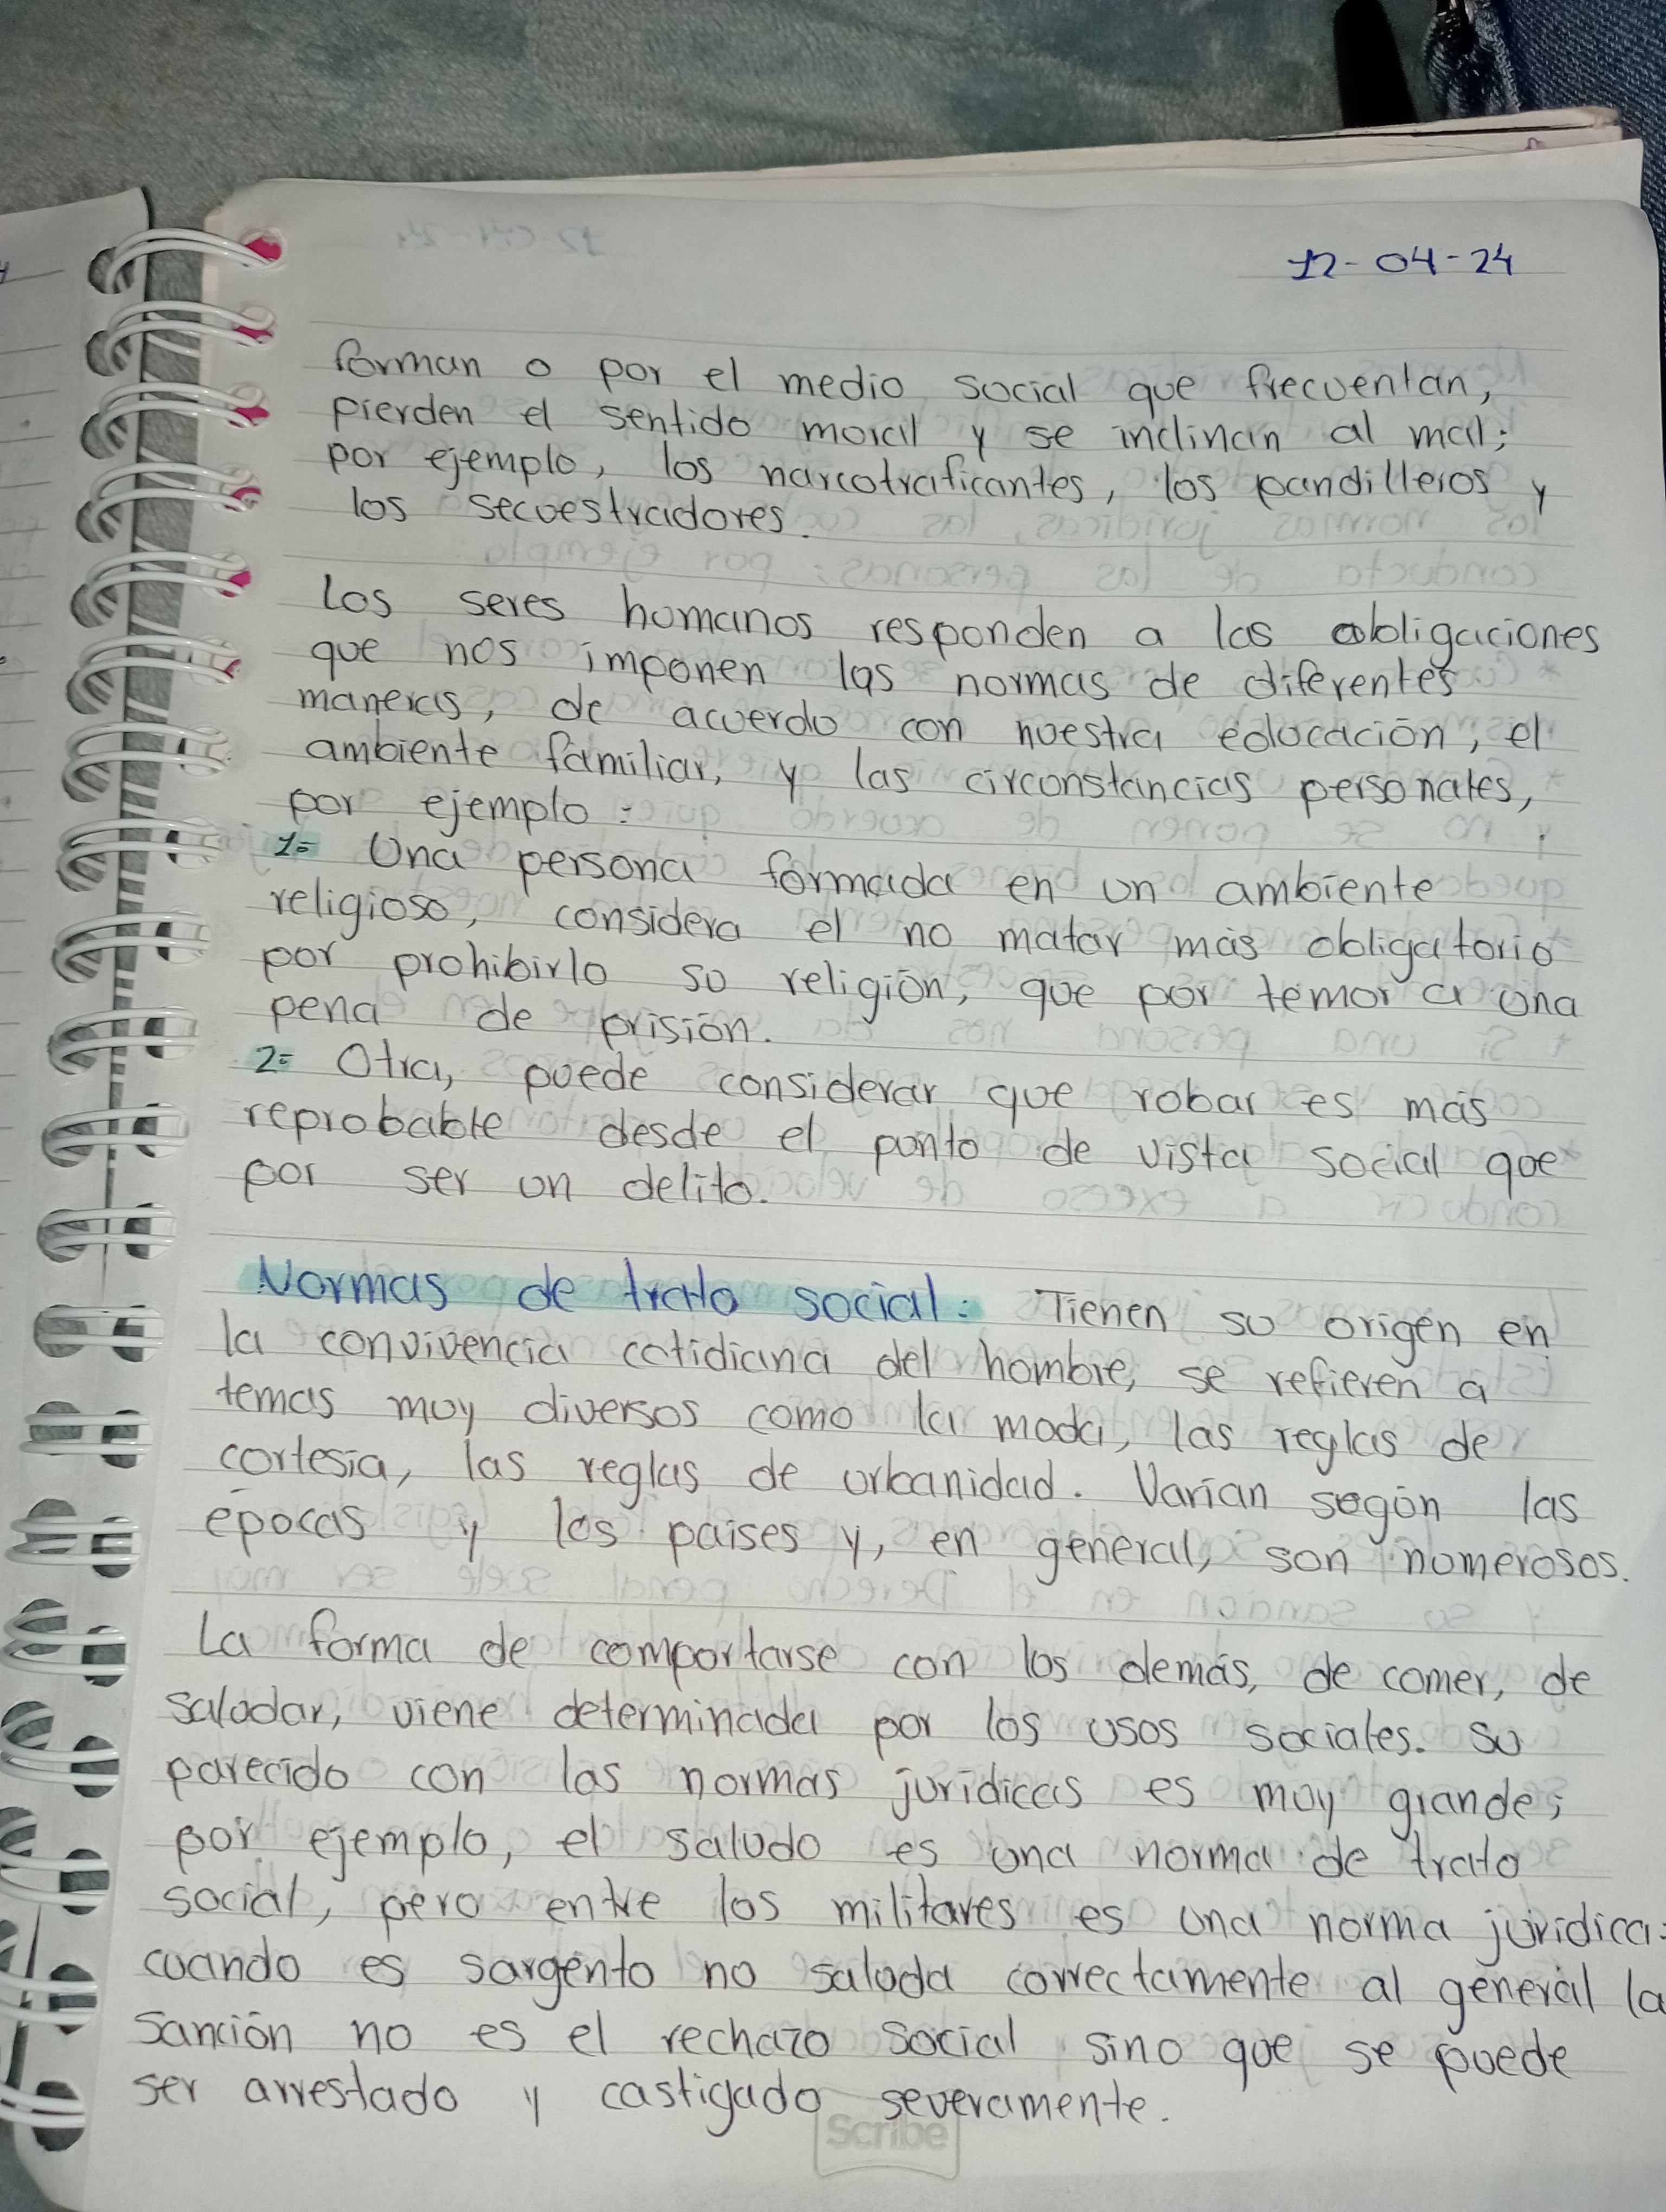 12-04-24
forman o por el medio social que frecuentan,
pierden el sentido moral y se inclinan al mal;
por ejemplo, los narcotraficantes, los pandilleros y
los secuestradores.
Los seres humanos responden a las obligaciones
que nos imponen las normas de diferentes
maneras, de acuerdo con nuestra educación, el
ambiente familiar, y las circonstancias personales,
por ejemplo:
1- Una persona formada en un ambiente
religioso, considera el no matar más obligatorio
por prohibirlo su religión, que por temor a una
pena de prisión.
2- Otra, puede considerar que robar es más
reprobable desde el punto de vista social que
por ser un delito.
Normas de trato social: Tienen su origen en
la convivencia cotidiana del hombre, se refieren a
temas muy diversos como la moda, las reglas de
cortesía, las reglas de urbanidad. Varían según las
épocas y los países y, en general, son numerosos.
La forma de comportarse con los demás, de comer, de
saludar, viene determinada por los usos sociales. Su
parecido con las normas jurídicas es muy grande;
por ejemplo, el saludo es una norma de trato
social, pero entre los militares es una norma jurídica:
cuando es sargento no saluda correctamente al general la
sanción no es el rechazo social sino que se puede
ser arrestado y castigado severamente.
Scribe